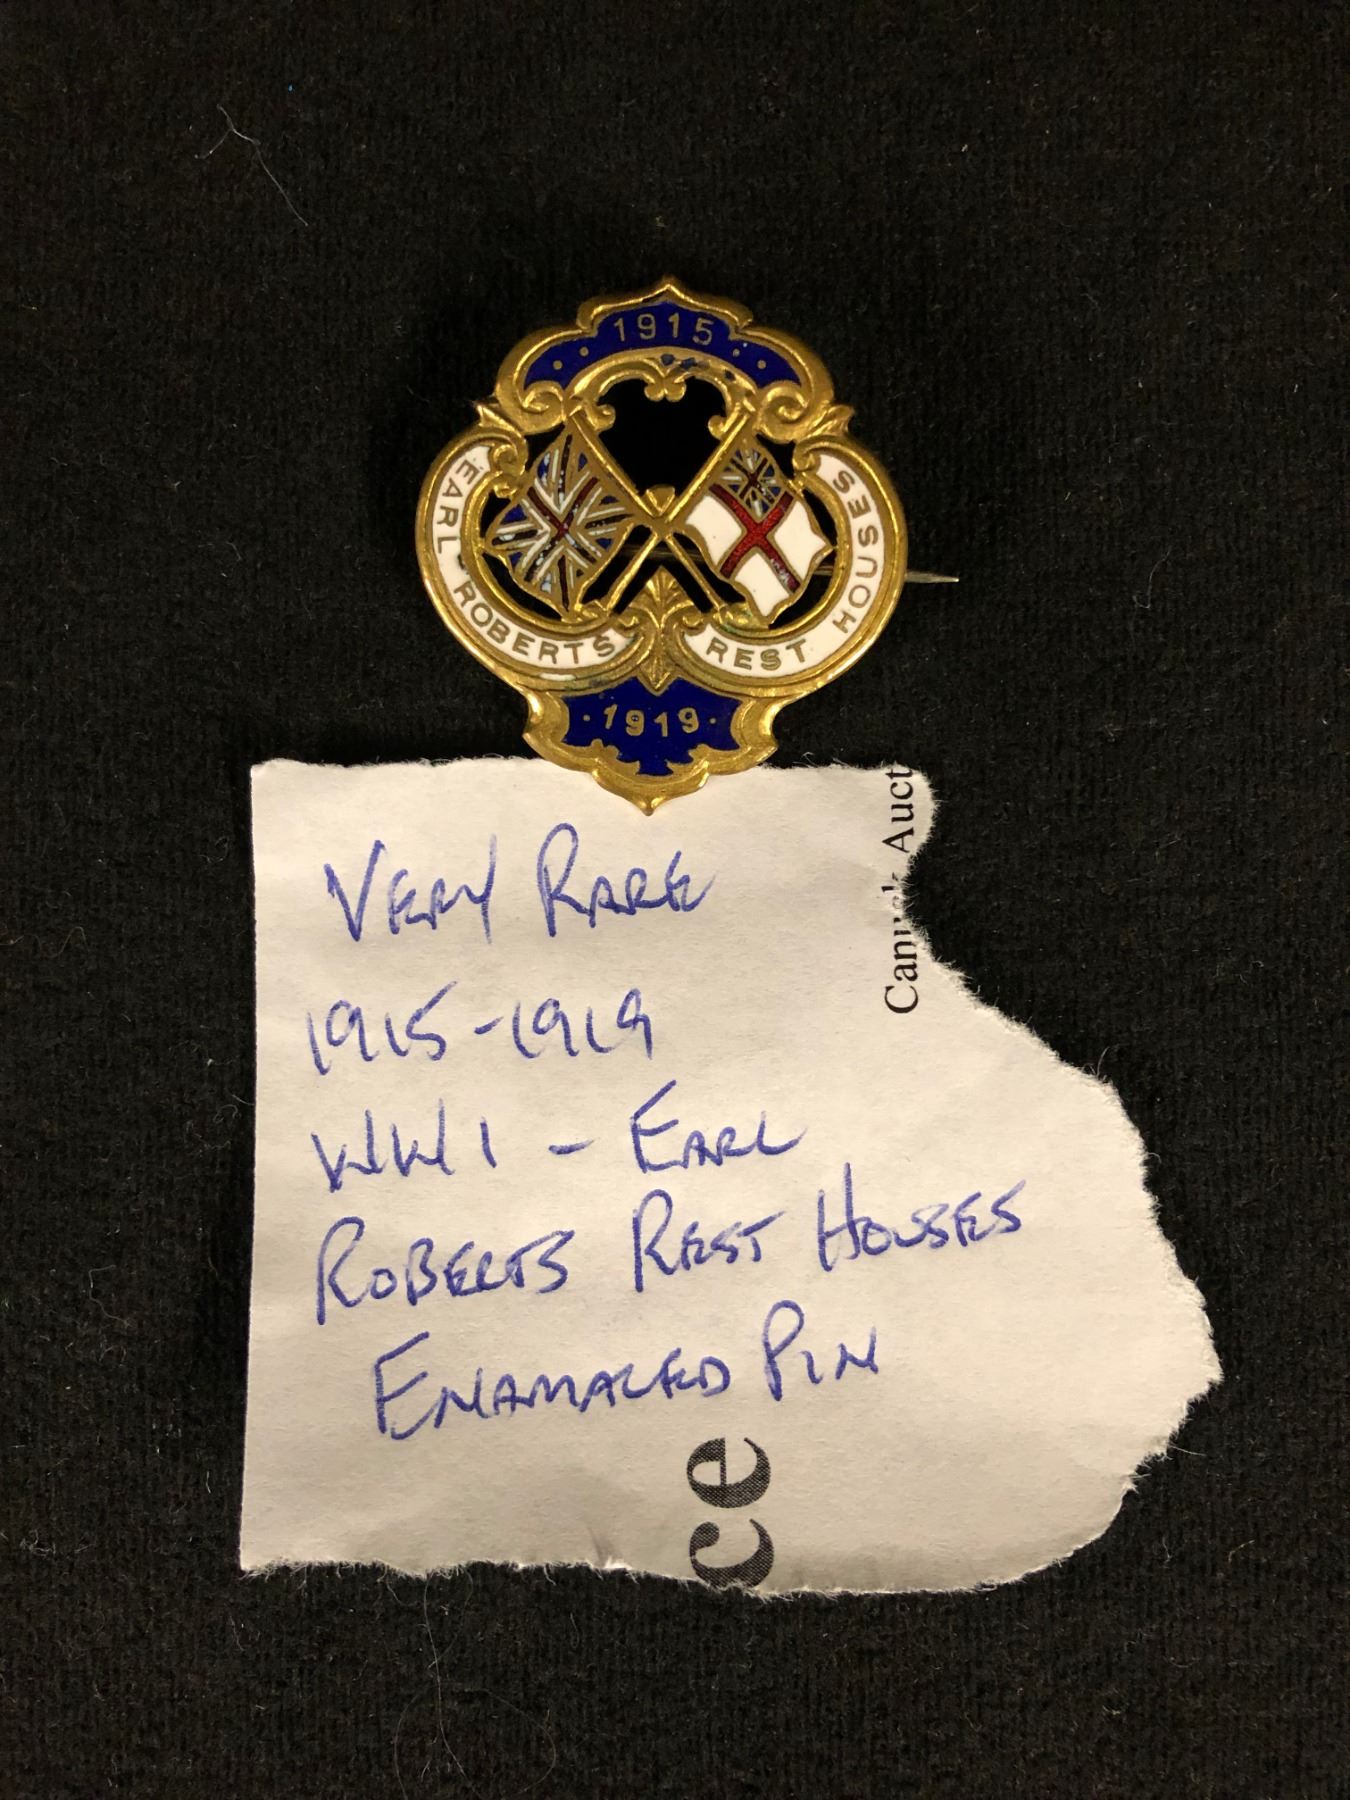 1915
EARL ROBERTS REST HOUSES
1919
VERY RARE
1915-1919
WW1 - EARL
ROBERTS REST HOUSES
ENAMALED PIN
Canuck Auct
ce